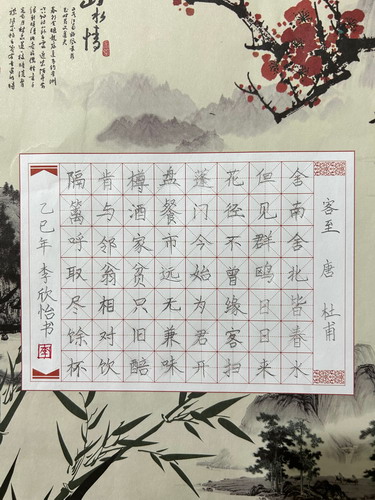 山水情
客至 唐 杜甫
舍南舍北皆春水
但见群鸥日日来
花径不曾缘客扫
蓬门今始为君开
盘餐市远无兼味
樽酒家贫只旧醅
肯与邻翁相对饮
隔篱呼取尽馀杯
乙巳年 李欣怡书